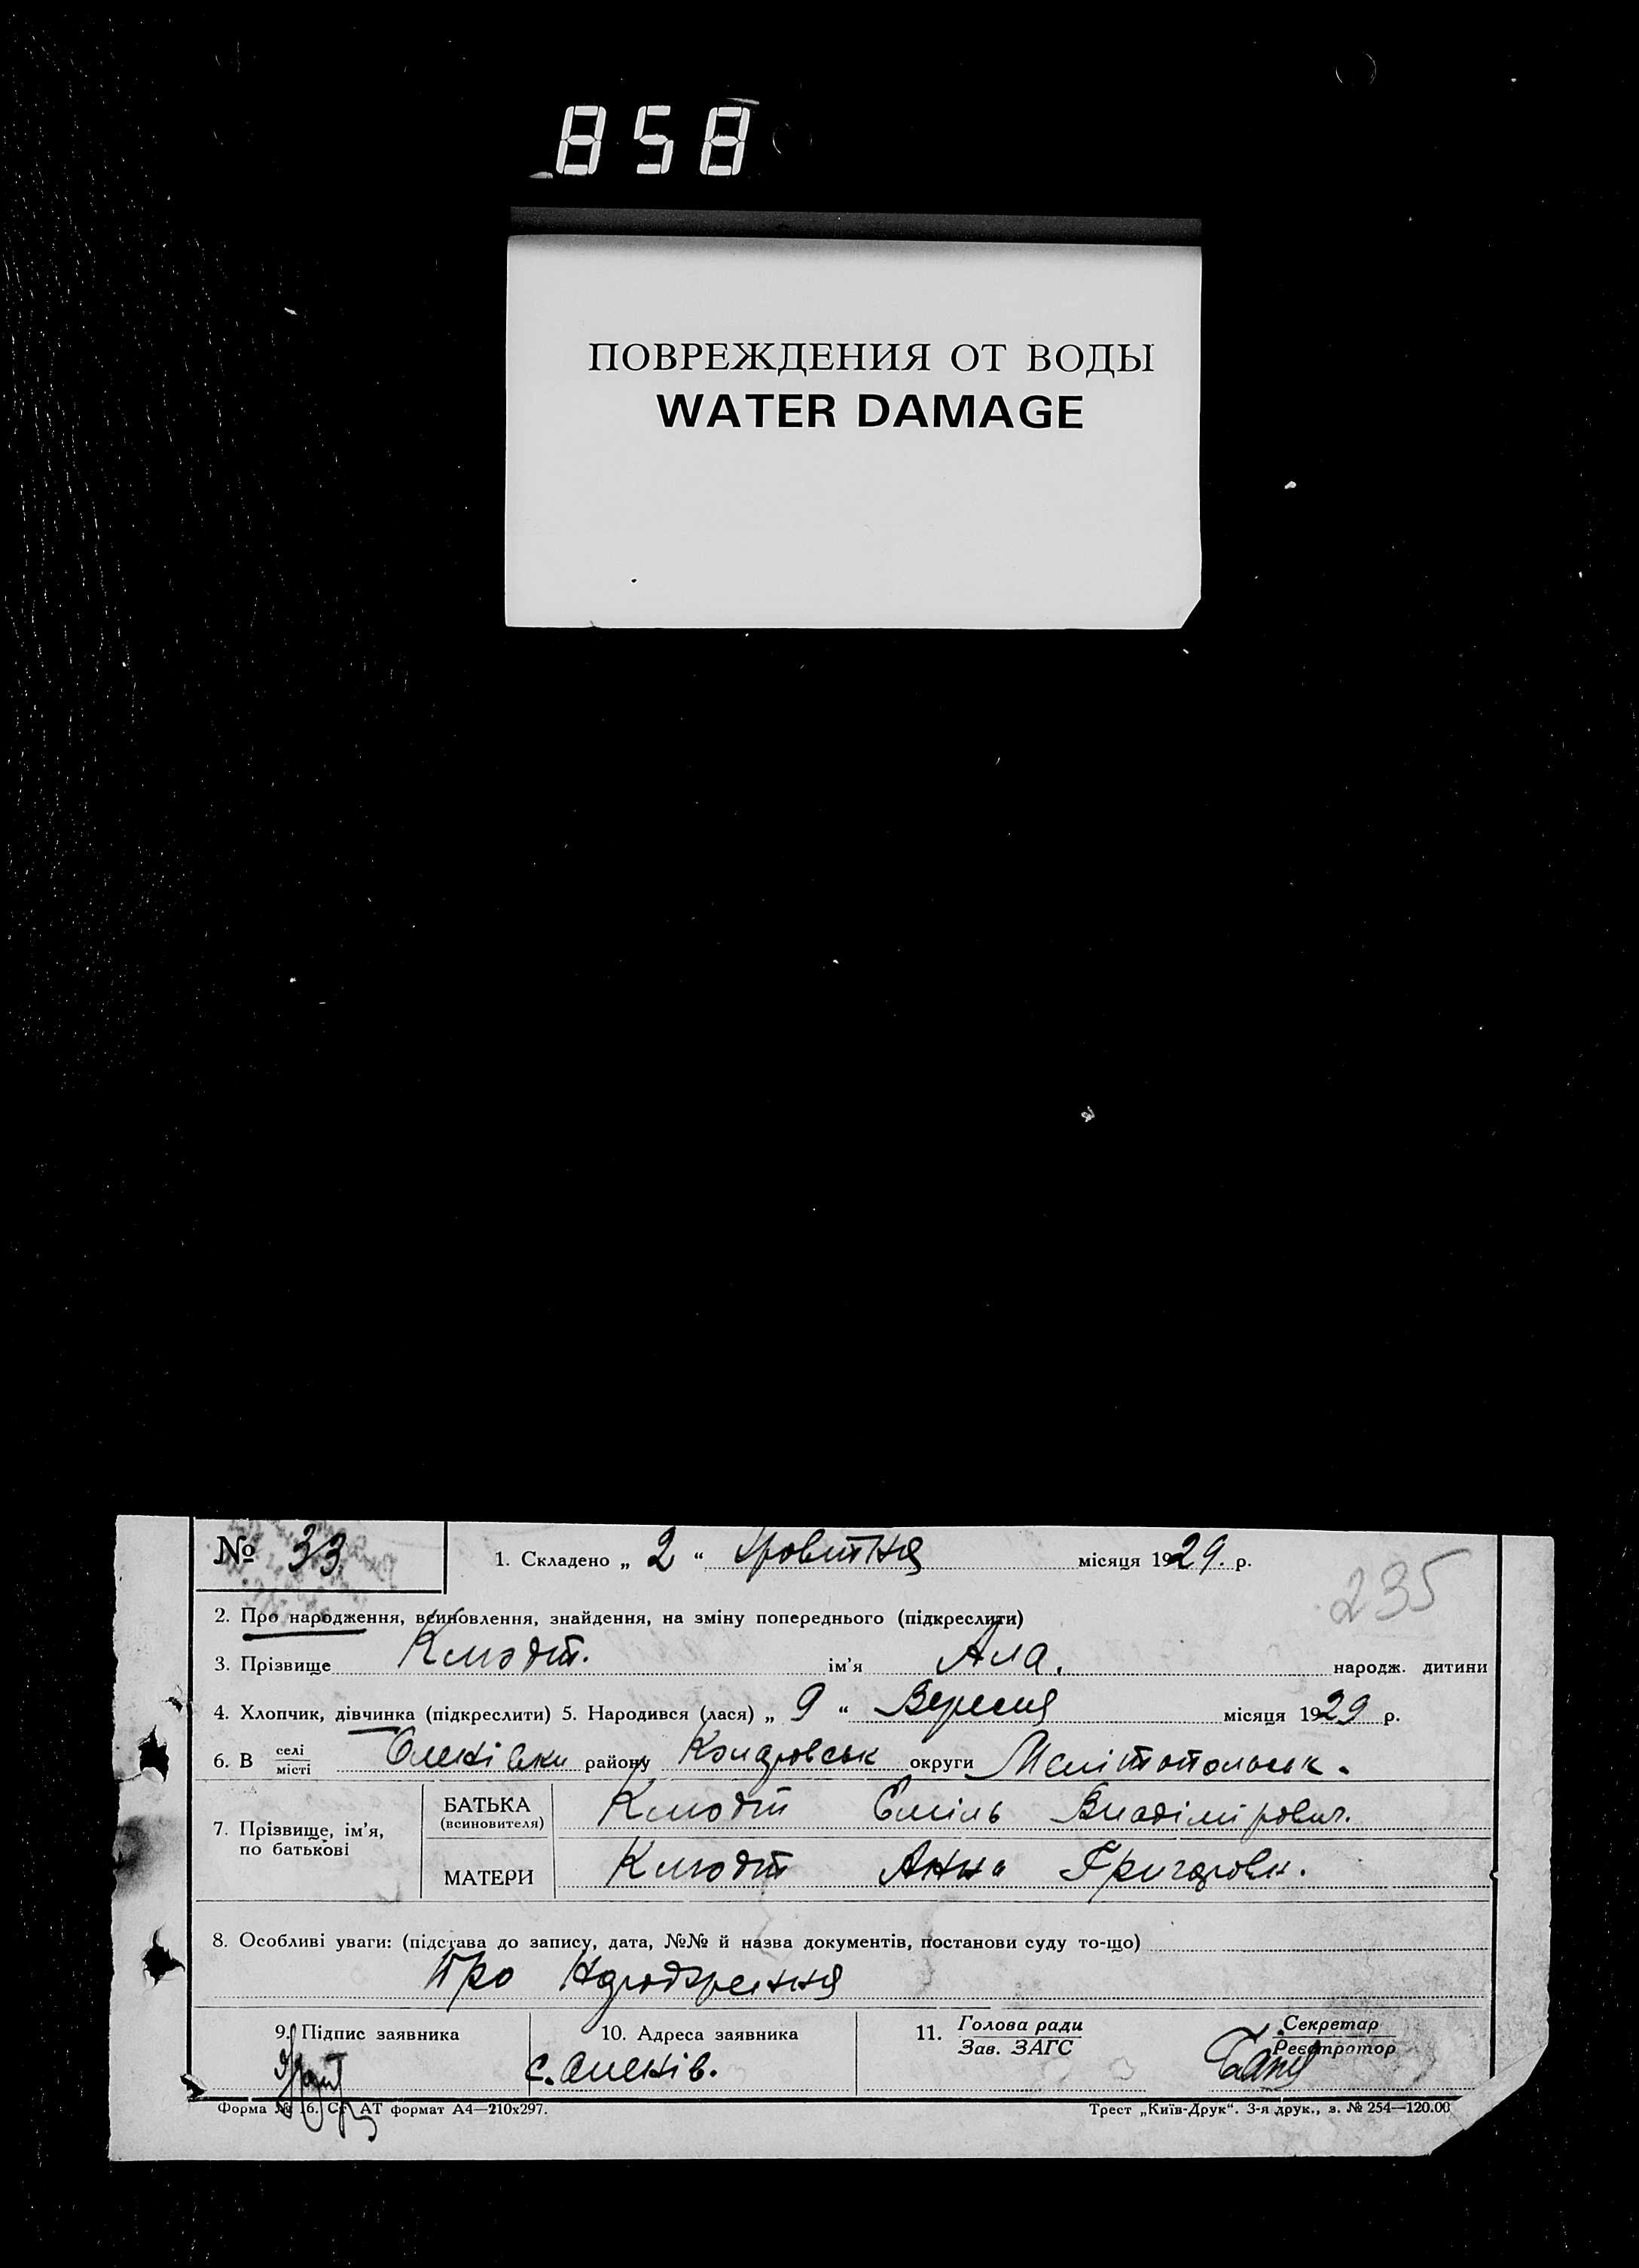 858
ПОВРЕЖДЕНИЯ ОТ ВОДЫ
WATER DAMAGE
№ 33
1. Складено „ 2 “ Жовтня місяця 1929. р.
235
2. Про народження, всиновлення, знайдення, на зміну попереднього (підкреслити)
3. Прізвище Клюдт. ім'я Ала. народж. дитини
4. Хлопчик, дівчинка (підкреслити) 5. Народився (лася) „ 9 “ Вересня місяця 1929 р.
6. В селі місті Оленівки району округи Мелітопольськ.
7. Прізвище, ім'я, по батькові
БАТЬКА (всиновителя) Клюдт Еміль Владімірович.
МАТЕРИ Клюдт Анна Григоровн.
8. Особливі уваги: (підстава до запису, дата, №№ й назва документів, постанови суду то-що)
Про народження
9. Підпис заявника 10. Адреса заявника 11. Голова ради Зав. ЗАГС Секретар Реєстратор
с. Оленів.
Форма № 6. Ст. АТ формат А4—210х297. Трест „Київ-Друк“. 3-я друк., з. № 254—120.00